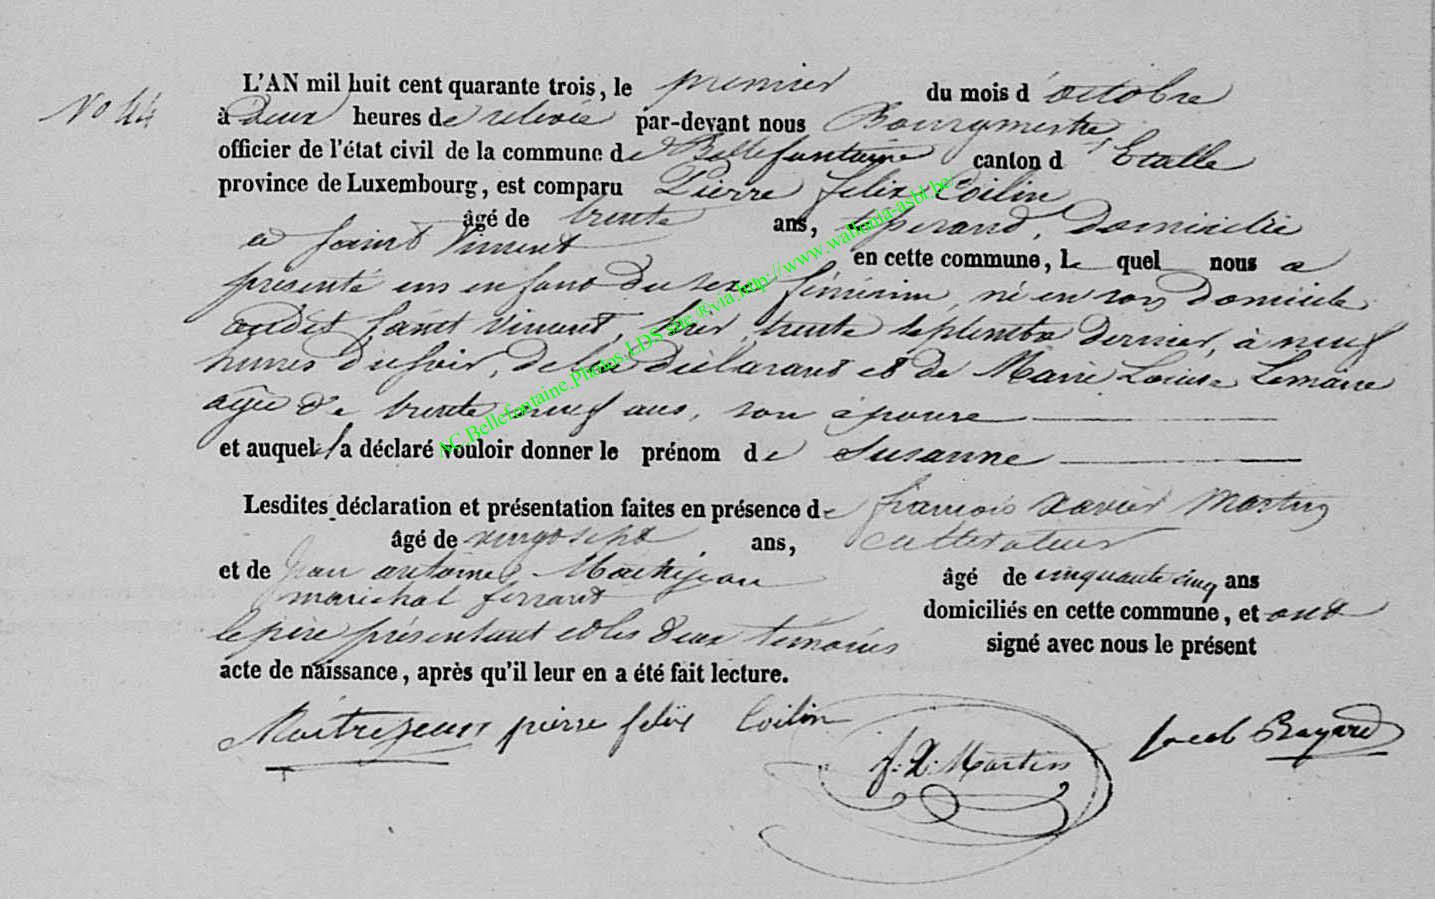 No 44
L'AN mil huit cent quarante trois, le premier du mois d'octobre
à deux heures de relevée par-devant nous Bourgmestre
officier de l'état civil de la commune de Bellefontaine canton d'Etalle
province de Luxembourg, est comparu Pierre felix Coilin
âgé de trente ans, domicilié
a Saint Vincent en cette commune, lequel nous a
présenté un enfant du sexe féminin, né en son domicile
audit Saint Vincent, hier, trente septembre dernier, à neuf
heures du soir, de lui déclarant et de Marie Louise Lemaire
agée de trente neuf ans, son épouse
et auquel il a déclaré vouloir donner le prénom de Susanne
Lesdites déclaration et présentation faites en présence de françois Xavier Martin
âgé de vingt sept ans, cultivateur
et de Jean antoine Maitrejean âgé de cinquante cinq ans
maréchal ferrant domiciliés en cette commune, et ont
le père présentant et les deux témoins signé avec nous le présent
acte de naissance, après qu'il leur en a été fait lecture.
Maitrejean pierre felix Coilin
f. X. Martin
Jacob Bayard
AC.Bellefontaine.Photos.LDS site ®via http://www.wallonia-asbl.be